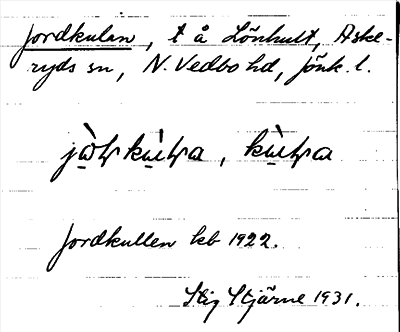 Jordkulan, t å Lönhult, Aske-
ryds sn, N. Vedbo hd, Jönk. l.
Jordkullen kb 1922.
Stig Stjärne 1931.